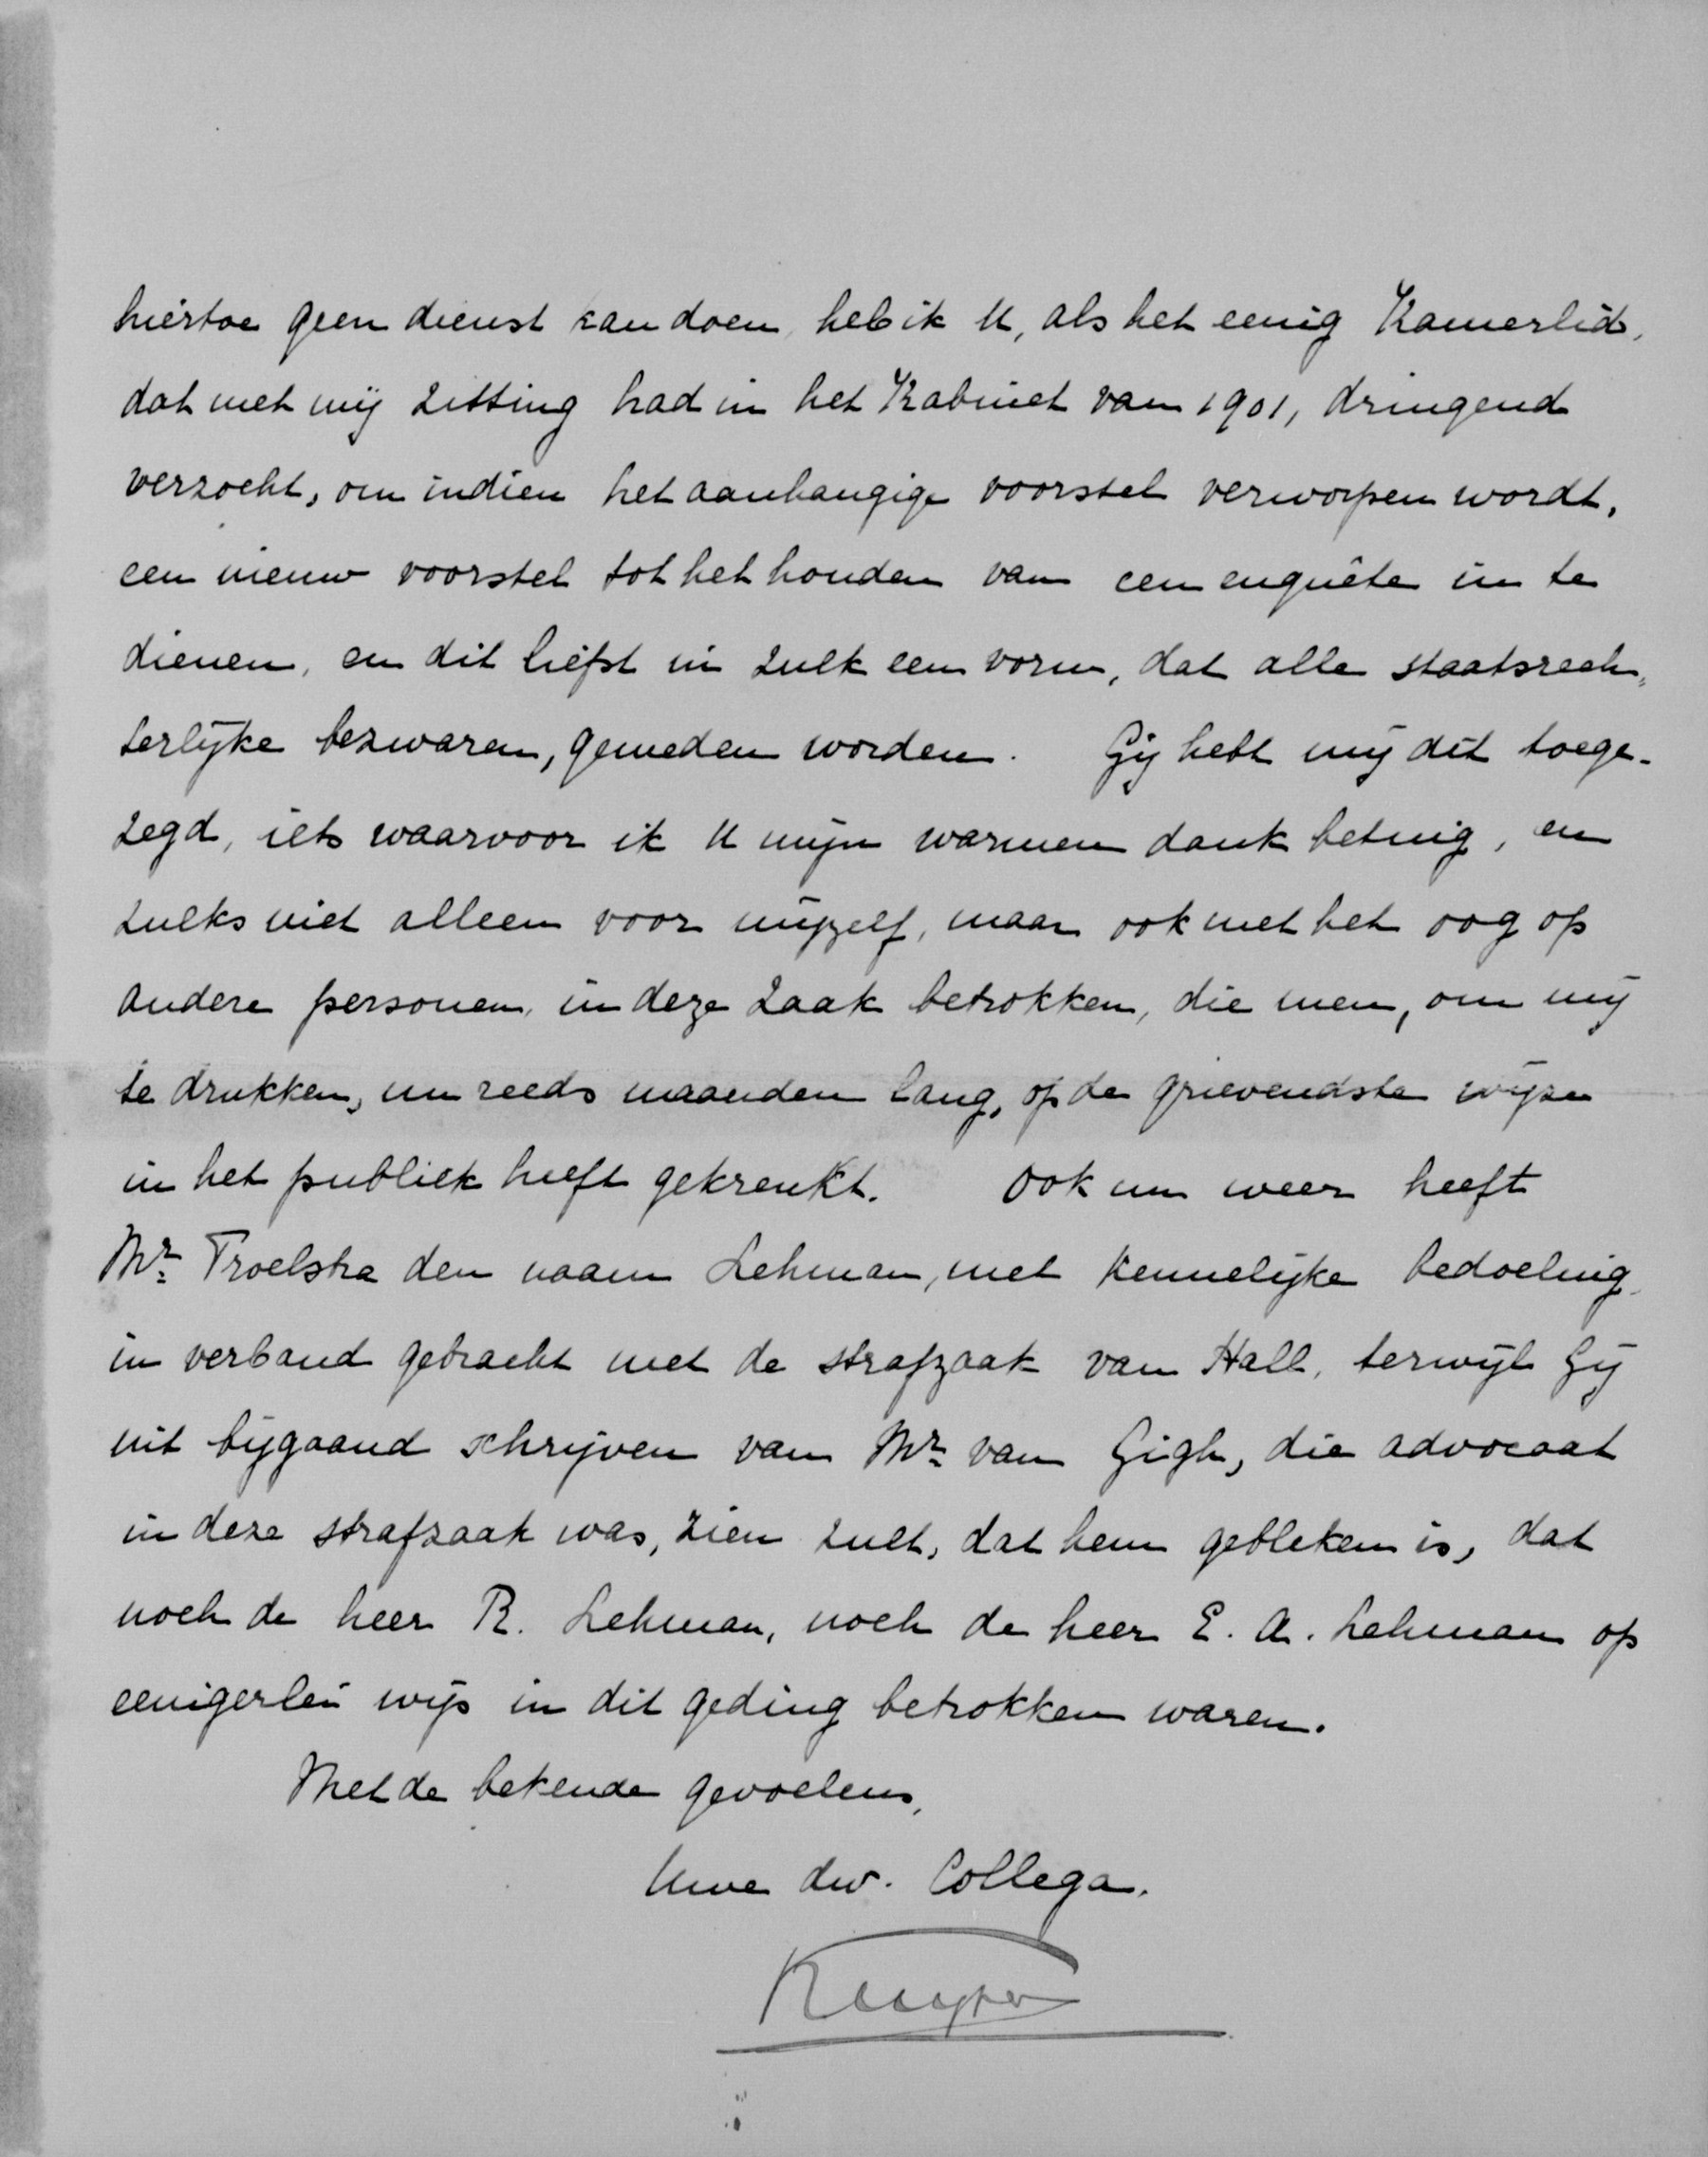 hiertoe geen dienst kan doen, heb ik U, als het eenig Kamerlid,
dat met mij zitting had in het Kabinet van 1901, dringend
verzocht, om indien het aanhangige voorstel verworpen wordt,
een nieuw voorstel tot het houden van een enquête in te
dienen, en dit liefst in zulk een vorm, dat alle staatsrech„
terlijke bezwaren, gemeden worden. Gij hebt mij dit toege-
zegd, iets waarvoor ik U mijn warmen dank betuig, en
zulks niet alleen voor mijzelf, maar ook met het oog op
andere personen, in deze zaak betrokken, die men, om mij
te drukken, nu reeds maanden lang, op de grievendste wijze
in het publiek heeft gekrenkt. Ook nu weer heeft
Mr. Troelstra den naam Lehman, met kennelijke bedoeling
in verband gebracht met de strafzaak van Hall, terwijl Gij
uit bijgaand schrijven van Mr. van Gigh, die advocaat
in deze strafzaak was, zien zult, dat hem gebleken is, dat
noch de heer R. Lehman, noch de heer E. A. Lehman op
eenigerlei wijs in dit geding betrokken waren.
Met de bekende gevoelens,
Uwe dw. Collega.
Kuyper